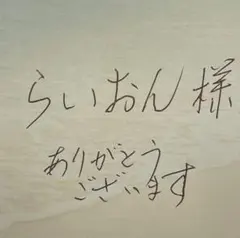 らいおん様
ありがとう
ございます